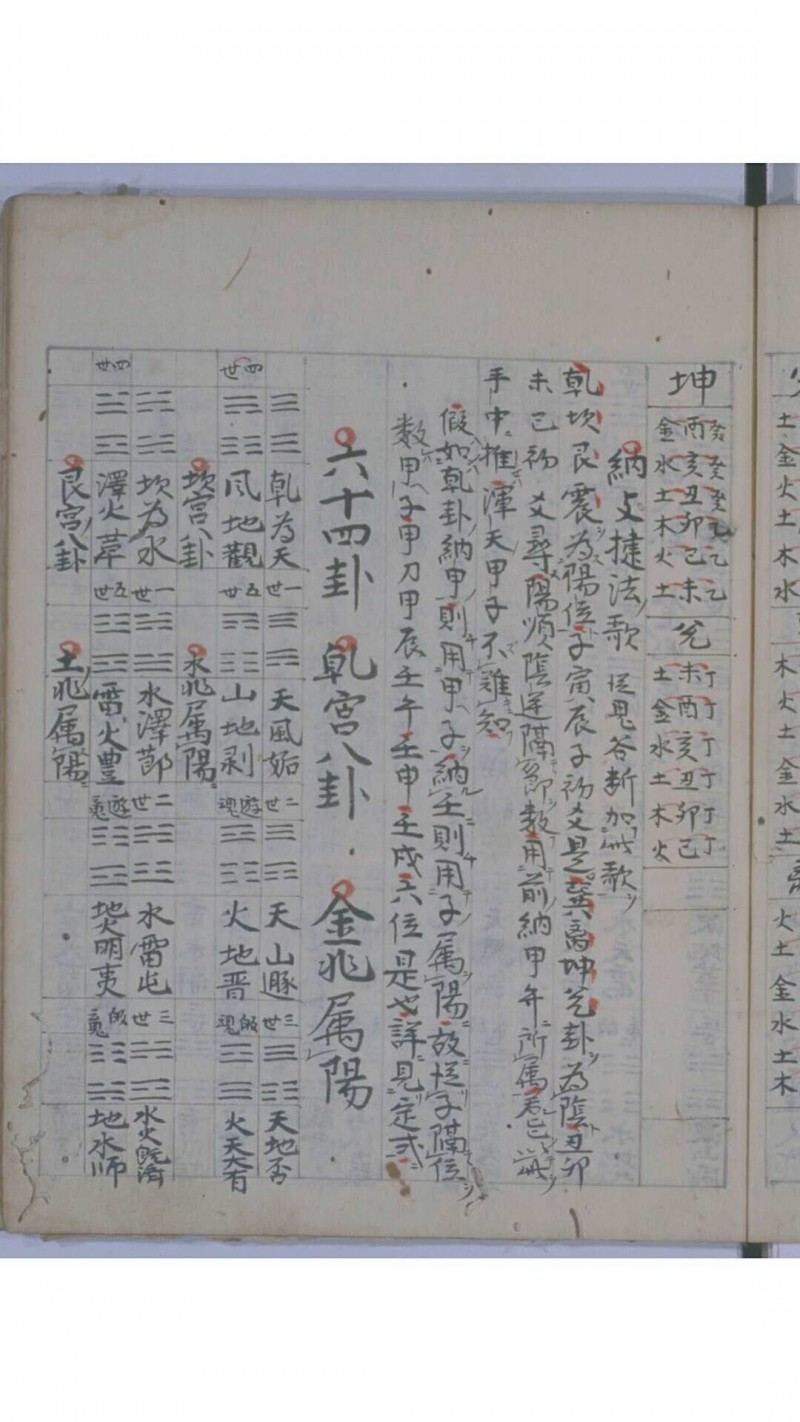 坤
癸癸癸乙乙乙
酉亥丑卯巳未
金水土木火土
兌
丁丁丁丁丁丁
未酉亥丑卯巳
土金水土木火
納爻捷法歌 從鬼谷断加此歌
乾坎艮震為陽位子寅辰子初爻是巽离坤兌卦為陰丑卯
未巳初爻尋陽順陰逆隔節数用前納甲年所属
手中推渾天甲子不難知
假如乾卦納甲則用甲子納壬則用子属陽故從子隔位
数甲子甲刀甲辰壬午壬申壬戌六位是也詳見定式
六十四卦 乾宮八卦 金兆属陽
乾為天 一世 天風姤 二世 天山豚 三世 天地否
四世 風地觀 五世 山地剥 遊魂 火地晋 皈魂 火天大有
坎宮八卦 水兆属陽
坎為水 一世 水澤節 二世 水雷屯 三世 水火既済
四世 澤火革 五世 雷火豊 遊䰟 地火明夷 皈䰟 地水师
艮宮八卦 土兆属陽
土金火土木水
木火土金水土
火土金水土木